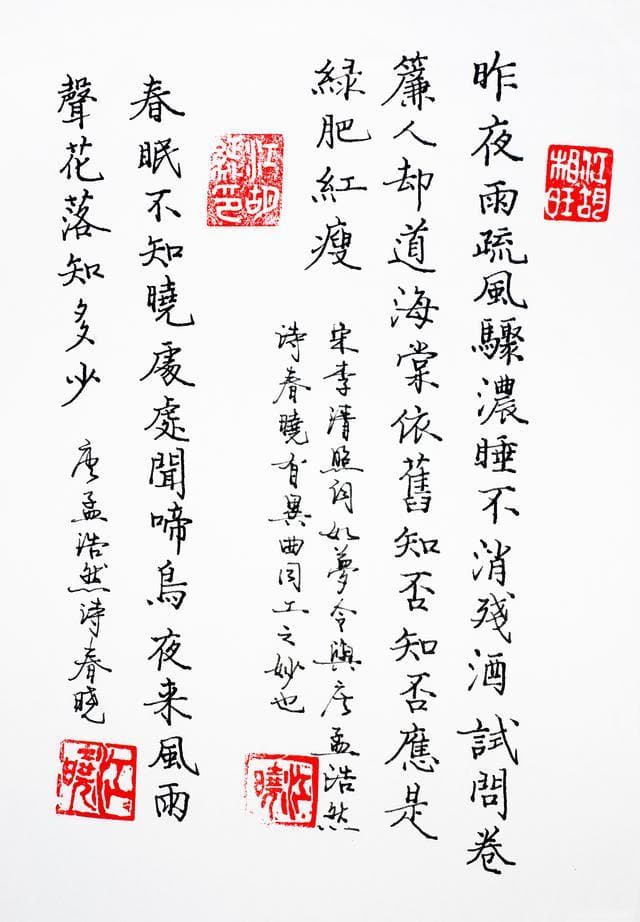 江胡
相旺
昨夜雨疏風驟濃睡不消殘酒試問卷
簾人却道海棠依舊知否知否應是
緑肥紅瘦
宋李清照词如夢令與唐孟浩然
诗春曉有異曲同工之妙也
江曉
春眠不知曉處處聞啼鳥夜来風雨
聲花落知多少
唐孟浩然诗春曉
江曉